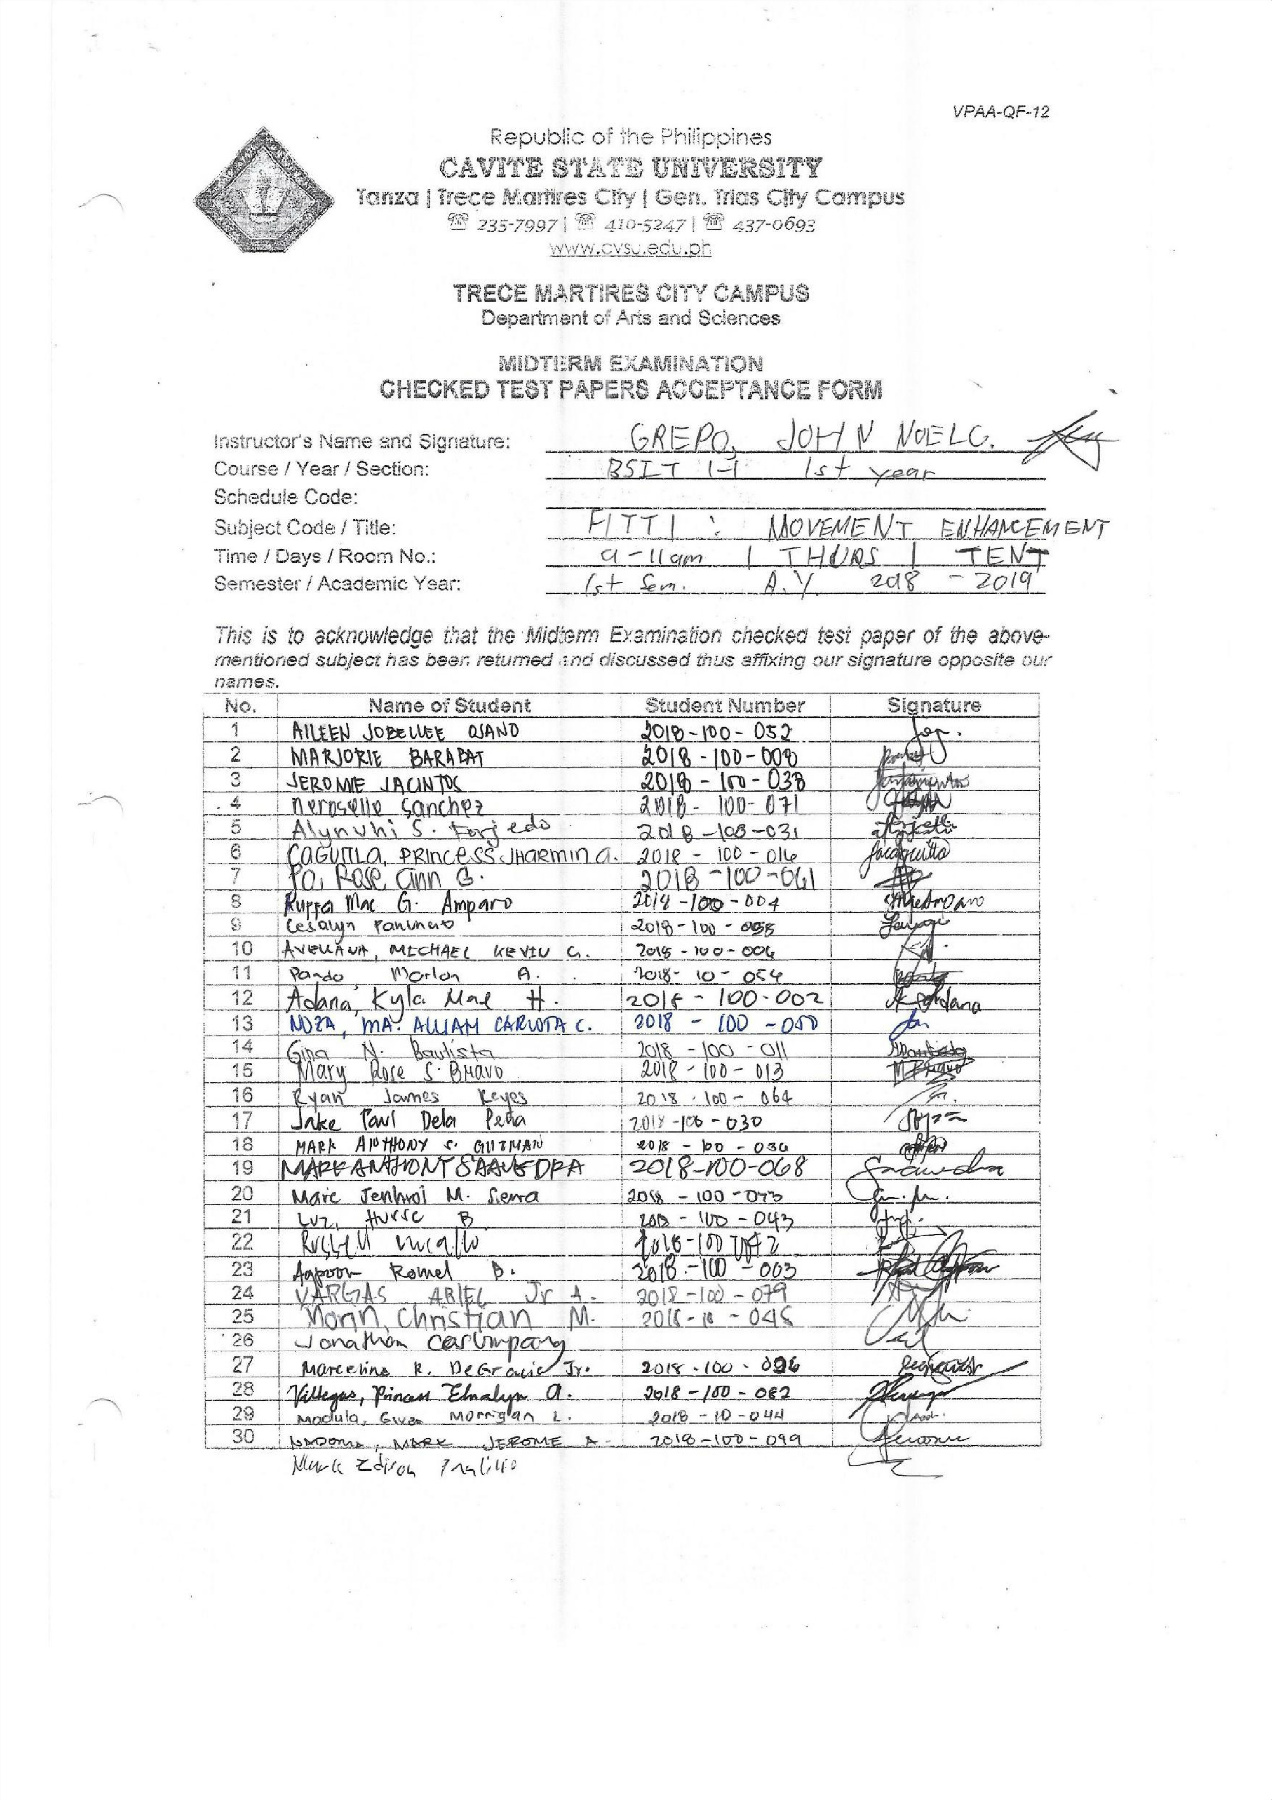 VPAA-QF-12
Republic of the Philippines
CAVITE STATE UNIVERSITY
Tanza | Trece Martires City | Gen. Trias City Campus
☏ 235-7997 | ☏ 410-5247 | ☏ 437-0693
www.cvsu.edu.ph
TRECE MARTIRES CITY CAMPUS
Department of Arts and Sciences
MIDTERM EXAMINATION
CHECKED TEST PAPERS ACCEPTANCE FORM
Instructor's Name and Signature: GREPO, JOHN NOEL C.
Course / Year / Section: BSIT 1-1 1st year
Schedule Code:
Subject Code / Title: FITT1 : MOVEMENT ENHANCEMENT
Time / Days / Room No.: 9-11am | THURS | TENT
Semester / Academic Year: 1st Sem. A.Y 2018 - 2019
This is to acknowledge that the Midterm Examination checked test paper of the above-
mentioned subject has been returned and discussed thus affixing our signature opposite our
names.
No. Name of Student Student Number Signature
1 AILEEN JOBELLEE OSANO 2018-100-052
2 MARJORIE BARABAT 2018-100-008
3 JEROMIE JACINTOS 2018-100-038
4 Neroselle Sanchez 2018-100-071
5 Alynuhi S. 2018-100-031
6 CAGUITLA, PRINCESS JHARMIN a. 2018-100-016
7 Po, Rose Ann G. 2018-100-061
8 Mae G. Amparo 2018-100-004
9 Cesalyn 2018-100-058
10 AVELLANA, MICHAEL KEVIN G. 2018-100-006
11 Pando Marlon A. 2018-10-054
12 Adana, Kyla Mae H. 2018-100-002
13 NOZA, MA. ALLIAH CARLOTA C. 2018-100-050
14 Gina N. Bautista 2018-100-011
15 Mary Rose S. Bravo 2018-100-013
16 Ryan James Reyes 2018-100-064
17 Jake Paul Dela Peña 2018-100-030
18 MARK ANTHONY S. GUZMAN 2018-100-036
19 MARK ANTHONY SAAVEDRA 2018-100-068 Saavedra
20 Marc M. Sierra 2018-100-073
21 Luz, B 2018-100-043
22 Russell 2018-100
23 Agpoon Romel B. 2018-100-003
24 VARGAS ARIEL Jr A. 2018-100-079
25 Morin, Christian M. 2018-10-045
26 Jonathan Carumpang
27 Marcelino R. DeGracia Jr. 2018-100-026
28 Villegas, Princess Elnalyn A. 2018-100-082
29 Madula, Gwen Morrigan L. 2018-10-044
30 MARK JEROME A. 2018-100-099 Jerome
Mark Edison